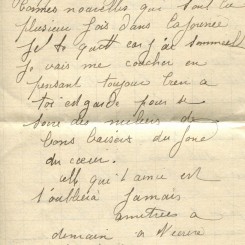 bonnes nouvelles qui
plusieur fois dans la journee
Je te quitt car j'ai sommeille
Je vais me coucher en
pensant toujour bien a
toi et garde pour
des milliers de
bons baisers du fond
du cœur.
celle qui t'aime et
t'oublira jamais
a
demain a